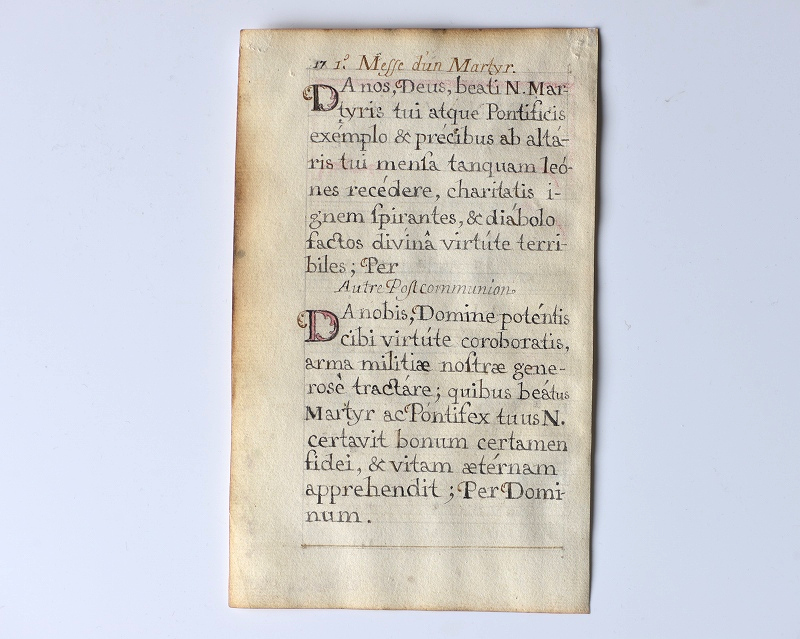 17 1.º Messe d'un Martyr.
DA nos, Deus, beati N. Mar-
tyris tui atque Pontificis
exémplo & précibus ab altá-
ris tui menſa tanquam leó-
nes recédere, charitatis i-
gnem ſpirantes, & diábolo
factos divinâ virtúte terri-
biles; Per
Autre Poſtcommunion.
DA nobis, Domine poténtis
cibi virtúte coroboratis,
arma militiæ noſtræ gene-
rosè tractáre; quibus beátus
Martyr ac Póntifex tuus N.
certavit bonum certamen
fidei, & vitam ætérnam
apprehendit; Per Domi-
num.